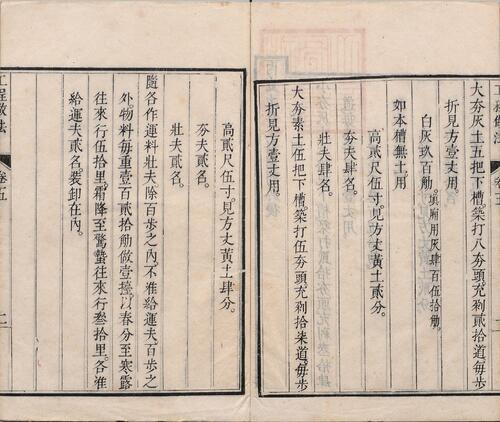 大夯灰土五把下槽築打八夯頭充剁貳拾道每步
折見方壹丈用
白灰玖百觔填廂用灰肆百伍拾觔
如本槽無土用
高貳尺伍寸見方丈黃土貳分
夯夫肆名
壯夫肆名
大夯素土伍把下槽築打伍夯頭充剁拾柒道每步
折見方壹丈用
高貳尺伍寸見方丈黃土肆分
夯夫貳名
壯夫貳名
隨各作運料壯夫除百步之內不准給運夫百步之
外物料每重壹百貳拾觔做壹擡以春分至寒露
往來行伍拾里霜降至驚蟄往來行叁拾里各准
給運夫貳名裝卸在內
工程做法
卷五